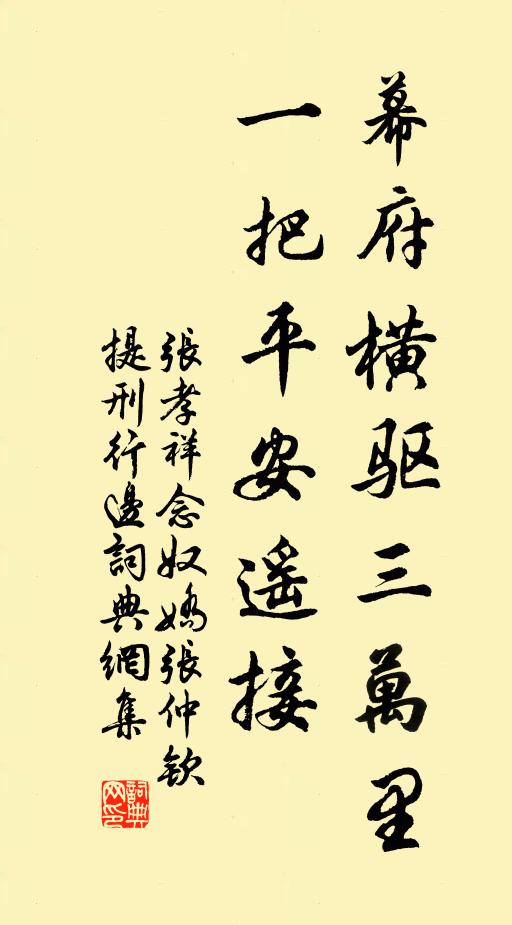 幕府横驱三萬里
一把平安遥接
張孝祥念奴嬌張仲欽
提刑行邊詞典網集
詞典网印